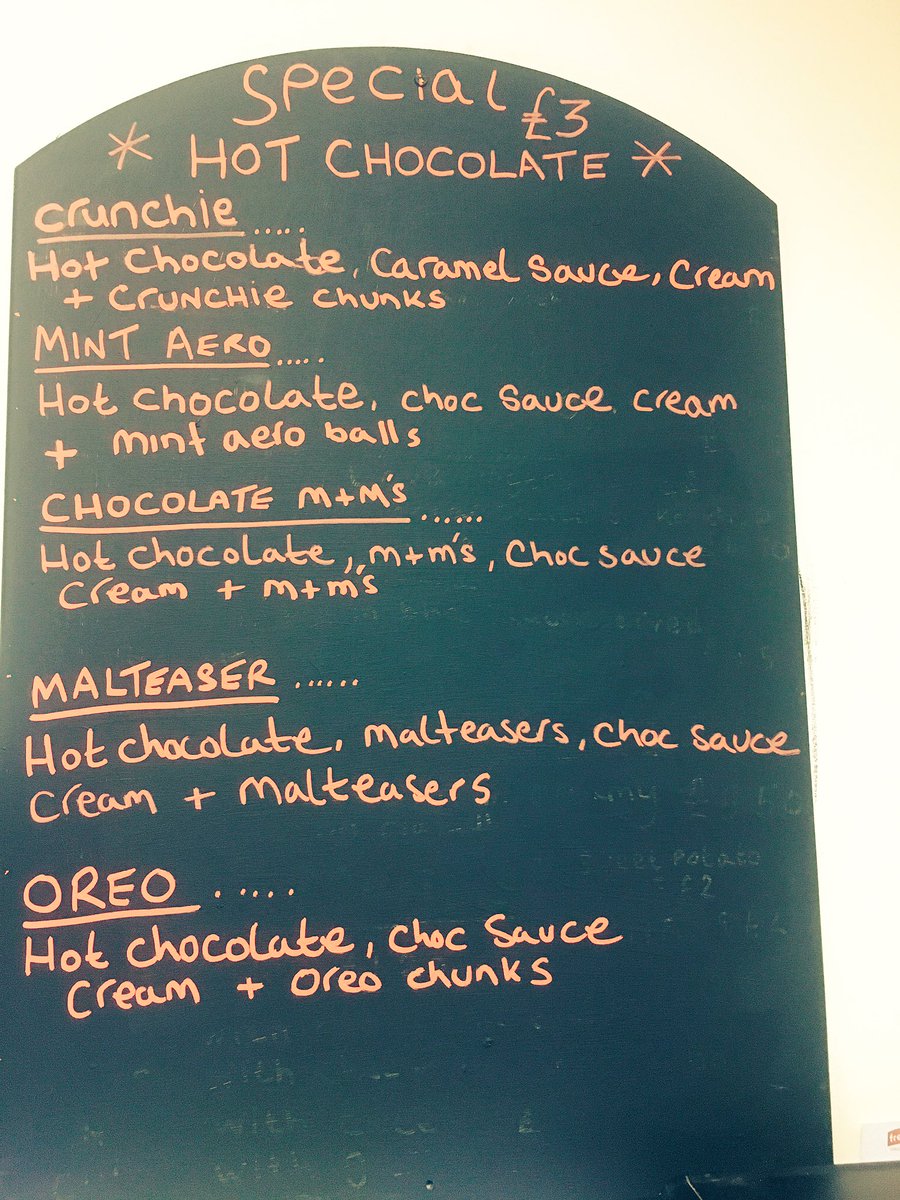 Special £3
* HOT CHOCOLATE *
crunchie .....
Hot chocolate, Caramel Sauce, Cream
+ CRUNCHIE chunks
MINT AERO .....
Hot chocolate, choc sauce cream
+ mint aero balls
CHOCOLATE M+M's ......
Hot chocolate, m+m's, Choc sauce
Cream + m+m's
MALTEASER ......
Hot chocolate, malteasers, choc sauce
Cream + Malteasers
OREO .....
Hot chocolate, choc Sauce
Cream + Oreo chunks